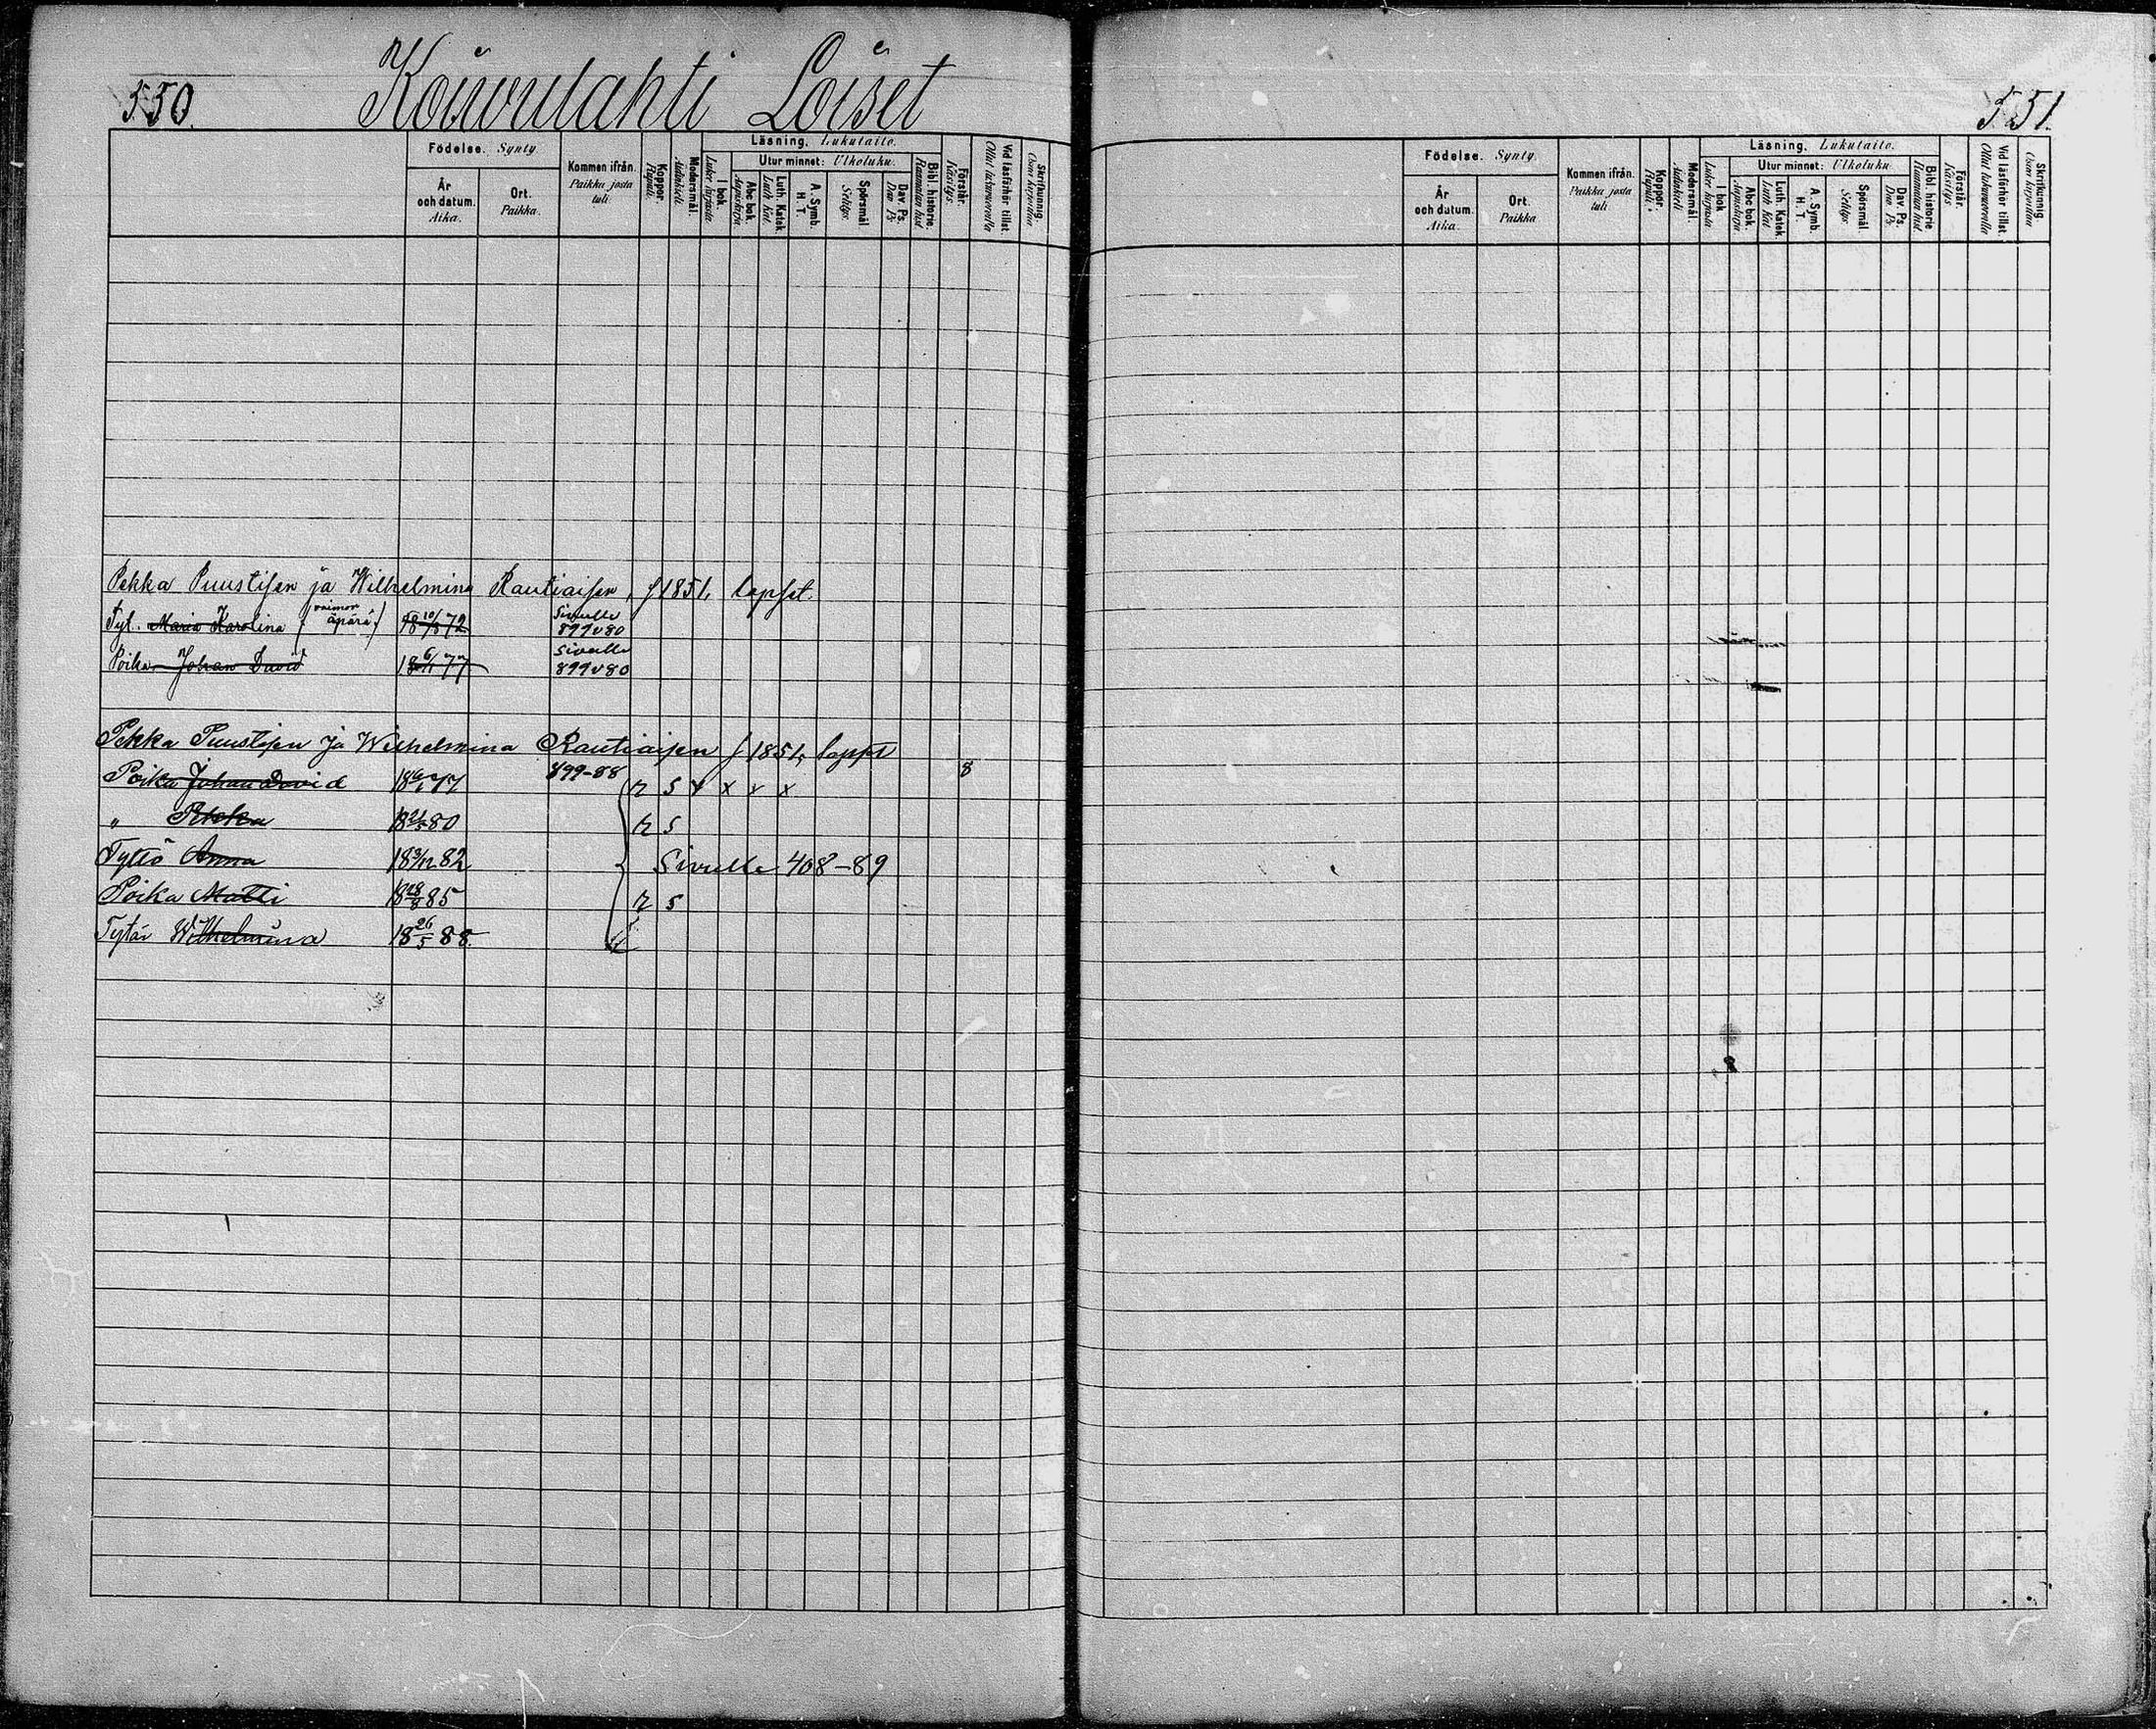 550.
Koivulahti Loiset
Födelse. Synty
År och datum. Aika.
Ort. Paikka.
Kommen ifrån. Paikka josta tuli.
Koppor. Rupuli.
Modersmål. Äidinkieli.
Läsning. Lukutaito.
I bok. Lukee kirjasta
Utur minnet: Ulkoluku.
Abc bok. Aapiskirja
Luth. Katek. Luth. Kat.
A. Symb. H. T.
Spörsmål Selitys.
Dav. Ps. Dav. Ps
Bibl. historie. Raamatun hist
Förstår. Käsitys.
Vid läsförhör tillst. Ollut lukuvuorolla
Skrifkunnig. Osaa kirjoittaa
Pekka Puustisen ja Wilhelmina Rautiaisen, f 1851, lapset.
Tyt. Maria Karolina (vaimon äpärä) 18 10/3 72 Sivulle 899 v 80
Poika Johan David 18 6/1 77 Sivulle 899 v 80
Pekka Puustisen ja Wilhelmina Rautiaisen f 1851, lapset
Poika Johan David 18 6/1 77 899-88 r s x x x x 8
" Pekka 80 r s
Tyttö Anna 18 3/12 82 Sivulle 408-89
Poika Matti 18 18/8 85 r s
Tytär Wilhelmina 18 26/5 88
551.
Födelse. Synty.
År och datum. Aika.
Ort. Paikka
Kommen ifrån. Paikka josta tuli
Koppor. Rupuli.
Modersmål. Äidinkieli
Läsning. Lukutaito.
I bok Lukee kirjasta
Utur minnet: Ulkoluku
Abc bok. Aapiskirja
Luth. Katek. Luth Kat
A. Symb. H. T.
Spörsmål. Selitys
Dav. Ps. Dav Ps
Bibl. historie Raamatun hist.
Förstår. Käsitys
Vid läsförhör tillst. Ollut lukuvuorolla
Skrifkunnig. Osaa kirjoittaa